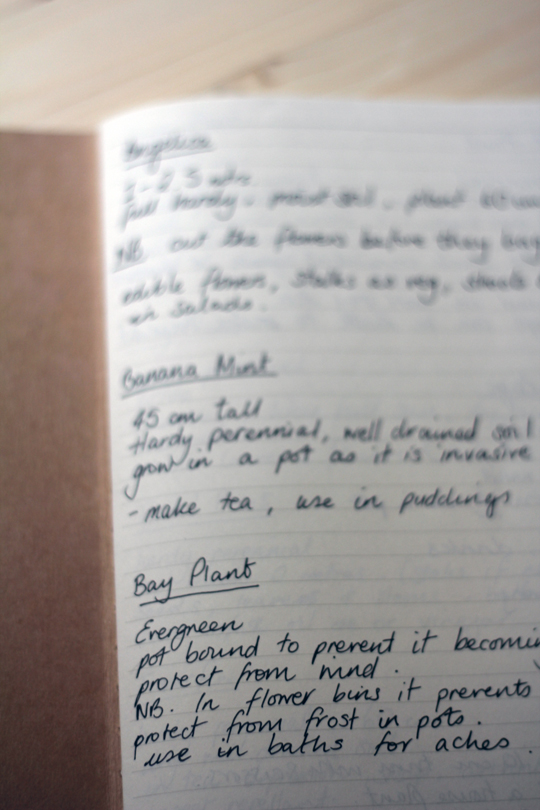 Angelica
2 - 2.5 mtr
full hardy - moist soil - plant
NB cut the flowers before they
edible flowers, stalks as veg, shoots
in salads.
Banana Mint
45 cm tall
Hardy perennial, well drained soil
grow in a pot as it is invasive
- make tea, use in puddings
Bay Plant
Evergreen
pot bound to prevent it becomin
protect from wind.
NB. In flower bins it prevents
protect from frost in pots.
use in baths for aches.